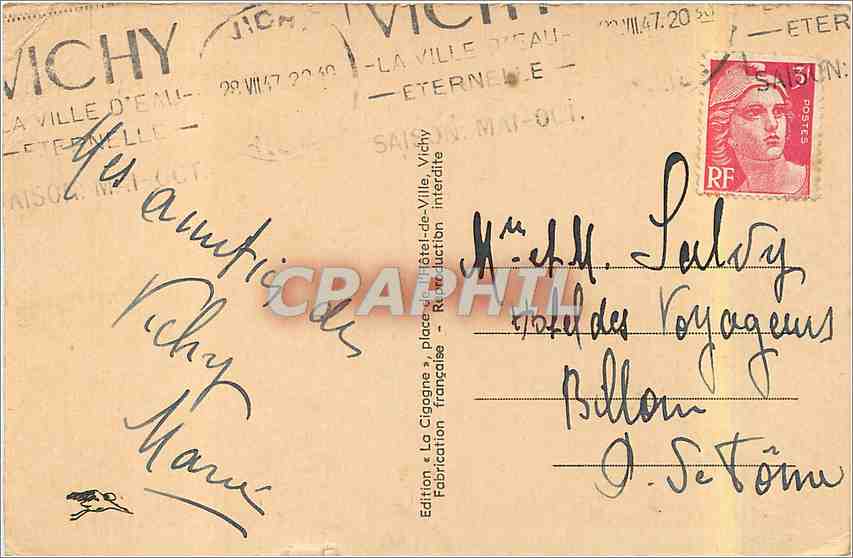 VICHY
LA VILLE D'EAU-
—ETERNELLE—
SAISON: MAI-OCT.
28.VII.47.20 30
VICHY
-LA VILLE D'EAU-
—ETERNELLE—
SAISON: MAI-OCT.
VII.47.20 30
-ETER
SAISON:
3F
POSTES
RF
Mes amitiés de
Vichy
Marie
Edition « La Cigogne », place de l'Hôtel-de-Ville, Vichy
Fabrication française - Reproduction interdite
CPAPHIL
Mme et M. Salvy
Hotel des Voyageurs
Billom
P. De Dôme